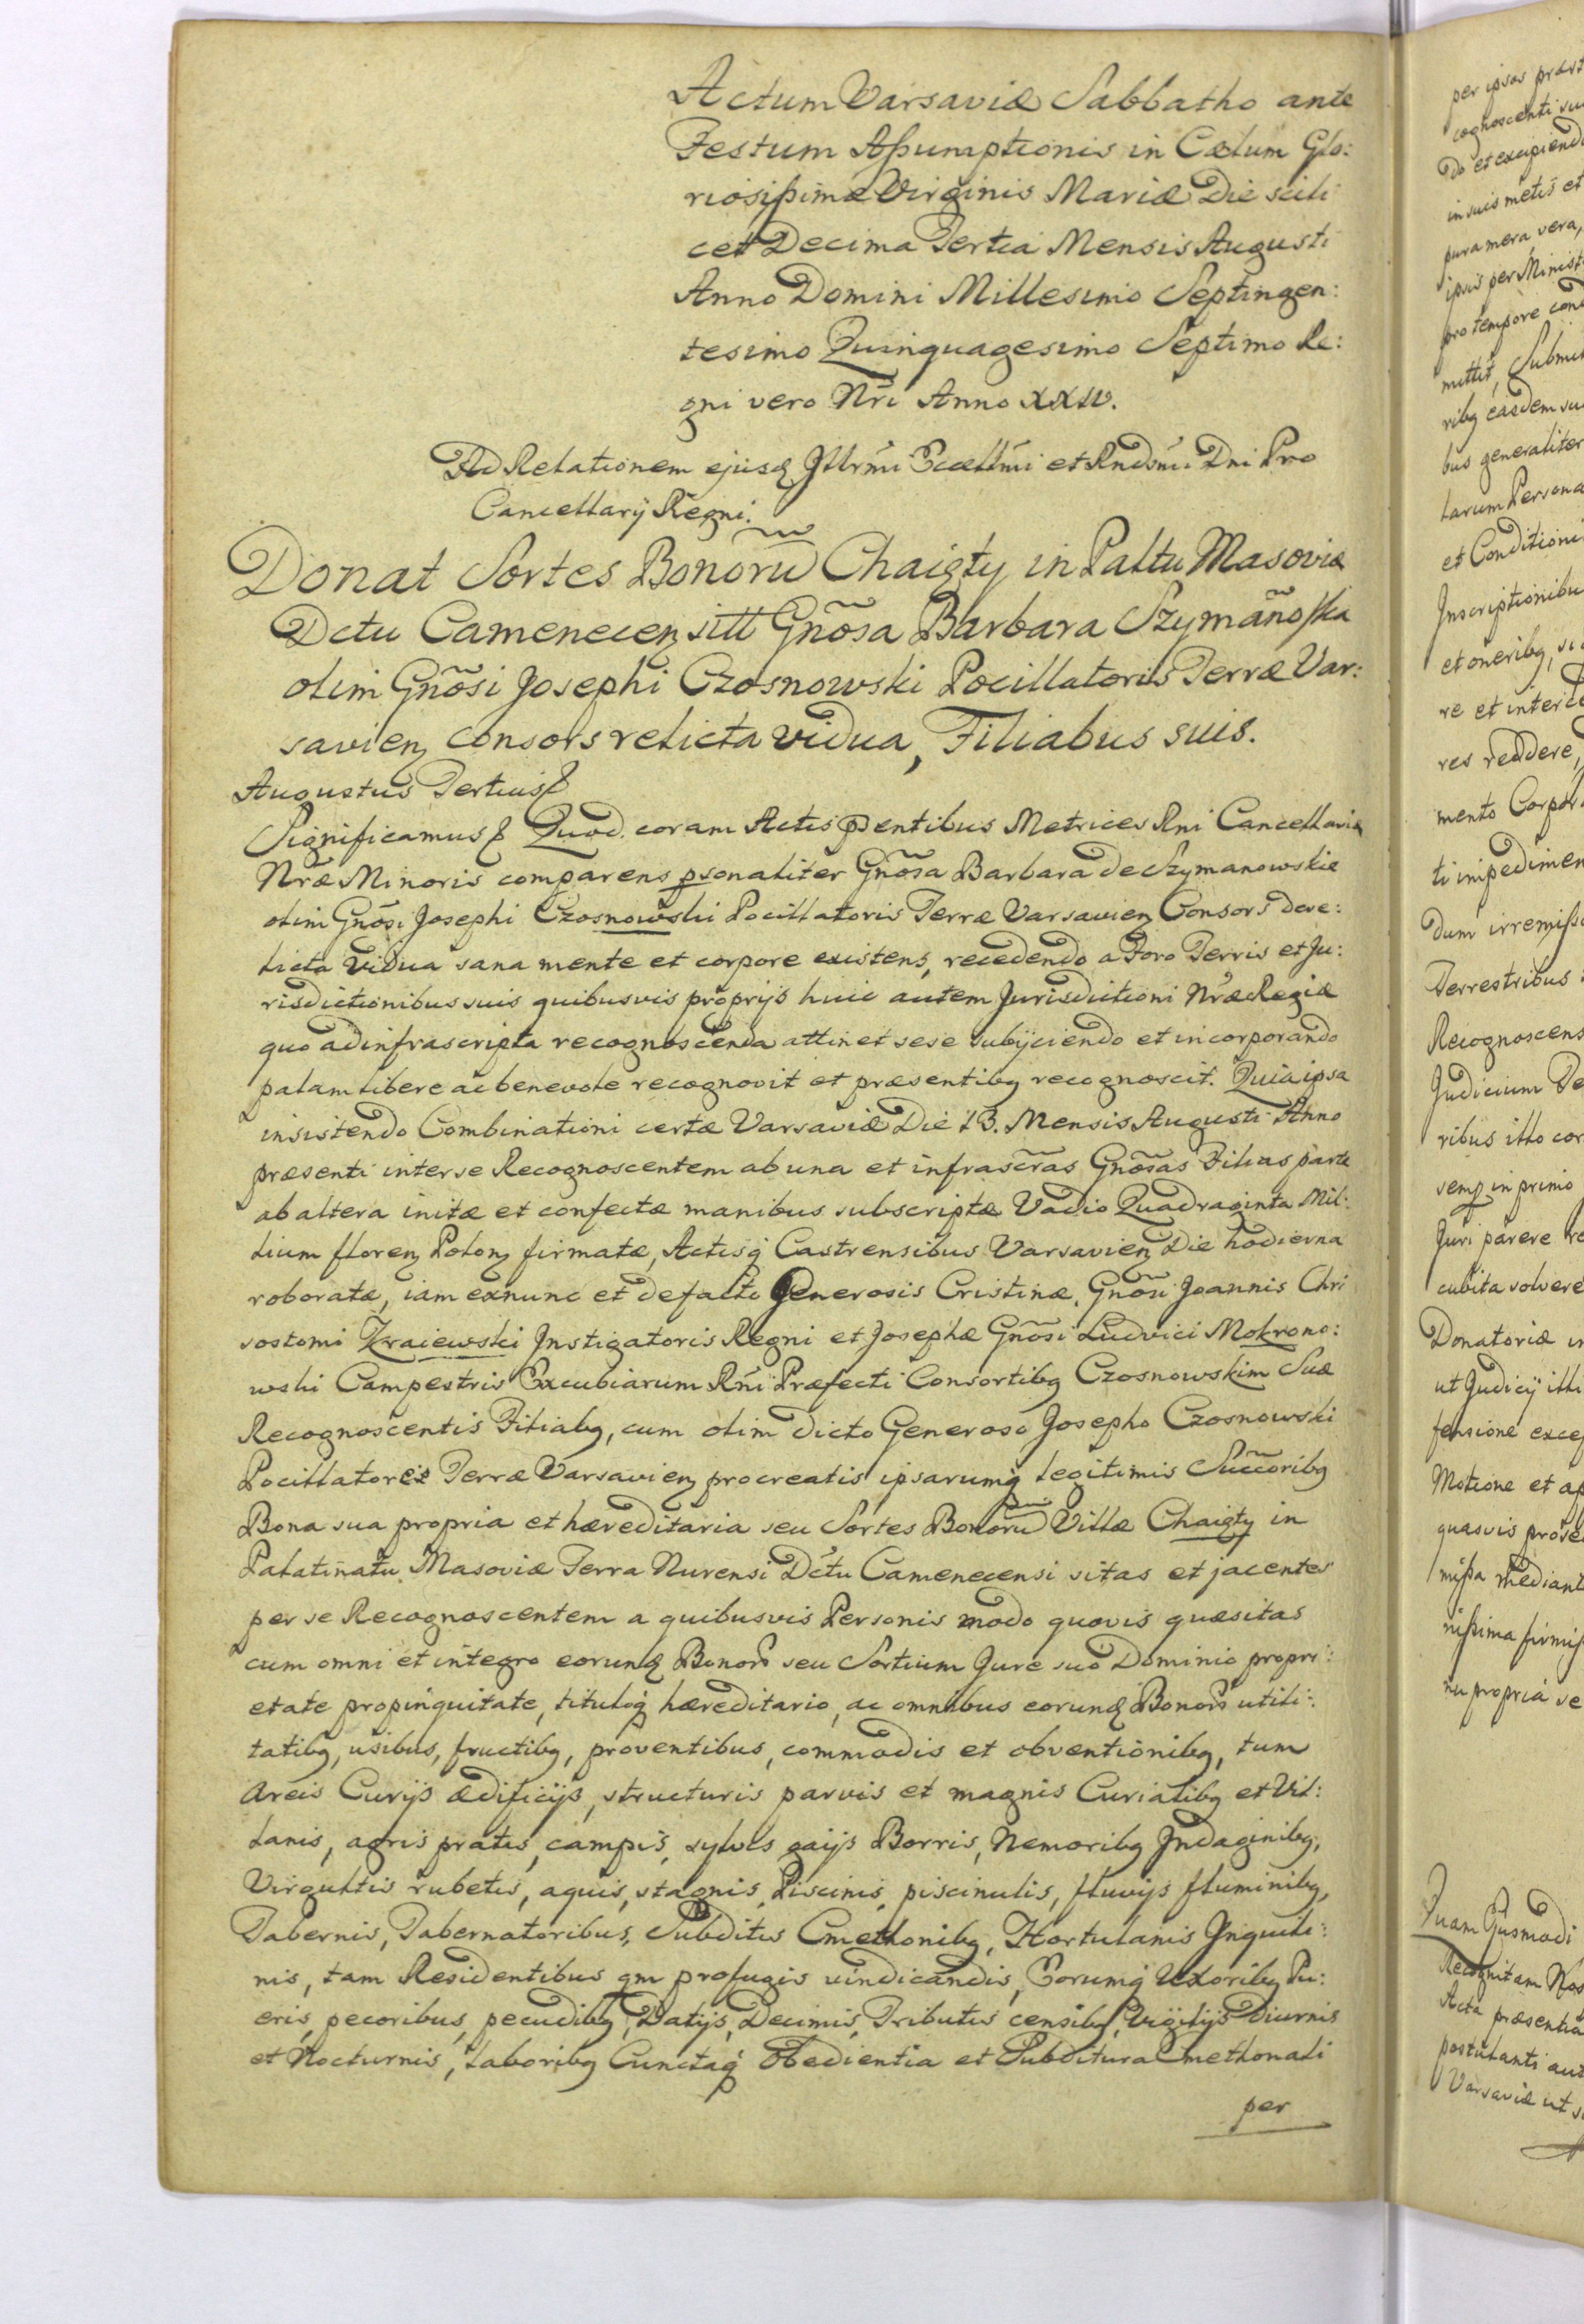 Actum Varsaviæ Sabbatho ante
Festum Aßumptionis in Cælum Glo:
riosißimæ Virginis Mariæ Die scili
cet Decima Tertia Mensis Augusti
Anno Domini Millesimo Septingen:
tesimo Quinquagesimo Septimo Re:
gni vero Nrĩ Anno XXIV.
Ad Relationem ejusq Jllrm̃i Excellm̃i et Rndsm̃i Dni Pro
Cancellarÿ Regni.
Donat Sortes Bonorũ Chaięty in Paltu Masoviæ
Dctu Camenecen sitt Gñosa Barbara Szymãnoska
olim Gñosi Josephi Czosnowski Pocillatoris Terræ Var:
savien consors relicta vidua, Filiabus suis.
Augustus Tertius
Significamus Quod. coram Actis pñentibus Metrices Rni Cancellariæ
Nræ Minoris comparens psonaliter Gñosa Barbara de Szymanowskie
olim Gñosi Josephi Czosnowski Pocillatoris Terræ Varsavien Consors dere:
licta Vidua sana mente et corpore existens, recedendo a Foro Terris et Ju:
risdictionibus suis quibusvis proprijs huic autem Jurisdictioni Nræ Regiæ
quo ad infrascripta recognoscenda attinet sese subÿciendo et incorporando
palam libere ac benevole recognovit et præsentibq recognoscit. Quia ipsa
insistendo Combinationi certæ Varsaviæ Die 13. Mensis Augusti Anno
præsenti inter se Recognoscentem ab una et infrascr̃as Gñosas Filias parte
ab altera initæ et confectæ manibus subscriptæ Vadio Quadraginta Mil:
lium floren Polon firmatæ, Actisq Castrensibus Varsavien Die hodierna
roboratæ, iam exnunc et defacto Generosis Cristinæ, Gñosi Joannis Chri
sostomi Kraiewski Instigatoris Regni et Josephæ Gñosi Ludvici Mokrono:
wski Campestris Excubiarum Rñi Præfecti Consortibq Czosnowskim Suæ
Recognoscentis Filiabq, cum olim dicto Generoso Josepho Czosnowski
Pocillatore Terræ Varsavien procreatis ipsarumq legitimis Succ̃oribq
Bona sua propria et hæreditaria seu Sortes Bonorũ Villæ Chaięty in
Palatinatu Masoviæ Terra Nurensi Dctu Camenecensi sitas et jacentes
per se Recognoscentem a quibusvis Personis modo quovis quæsitas
cum omni et integro eorunq Bonor seu Sortium Jure suo Dominio propri:
etate propinquitate, tituloq hæreditario, ac omnibus eorunq Bonor utili:
tatibq, usibus, fructibq, proventibus, commodis et obventionibq, tum
areis Curÿs ædificÿs, structuris parvis et magnis Curialibq et Vil:
lanis, agris pratis, campis, sylvis gaÿs Borris, Nemoribq Jndaginibq,
Virgultis rubetis, aquis, stagnis, Piscinis, piscinulis, fluvÿs fluminibq,
Tabernis, Tabernatoribus, Subditis Cmethonibq, Hortulanis Jnquili:
nis, tam Residentibus qm profugis vindicandis, Eorumq Uxoribq Pu:
eris, pecoribus, pecudibq, Datÿs, Decimis, Tributis censibq, Vigilÿs Diurnis
et Nocturnis, laboribq Cunctaq Obedientia et Subditura Cmethonali
per
per ipsos
cognoscenti su
do et excipiend
in suis metis et
pura mera, vera,
ipsis per Minist
pro tempore con
mittit, Submit
ribq easdem su
bus generaliter
larum Persona
et Conditioni
Jnscriptionibu
et oneribq, si
re et interce
res reddere,
mento Corpor
ti impedimen
dum irremißi
Terrestribus
Recognoscens
Judicium Te
ribus illo cor
semp in primo
Juri parere
cubita solvere
Donatoriæ
ut Judicÿ illi
fensione excep
Motione et ap
quasvis prose
mißa mediant
nißima firmiß
nu propria se
Quam
Recognitam Nos
Acta præsentia
postulanti aut
Varsaviæ ut s